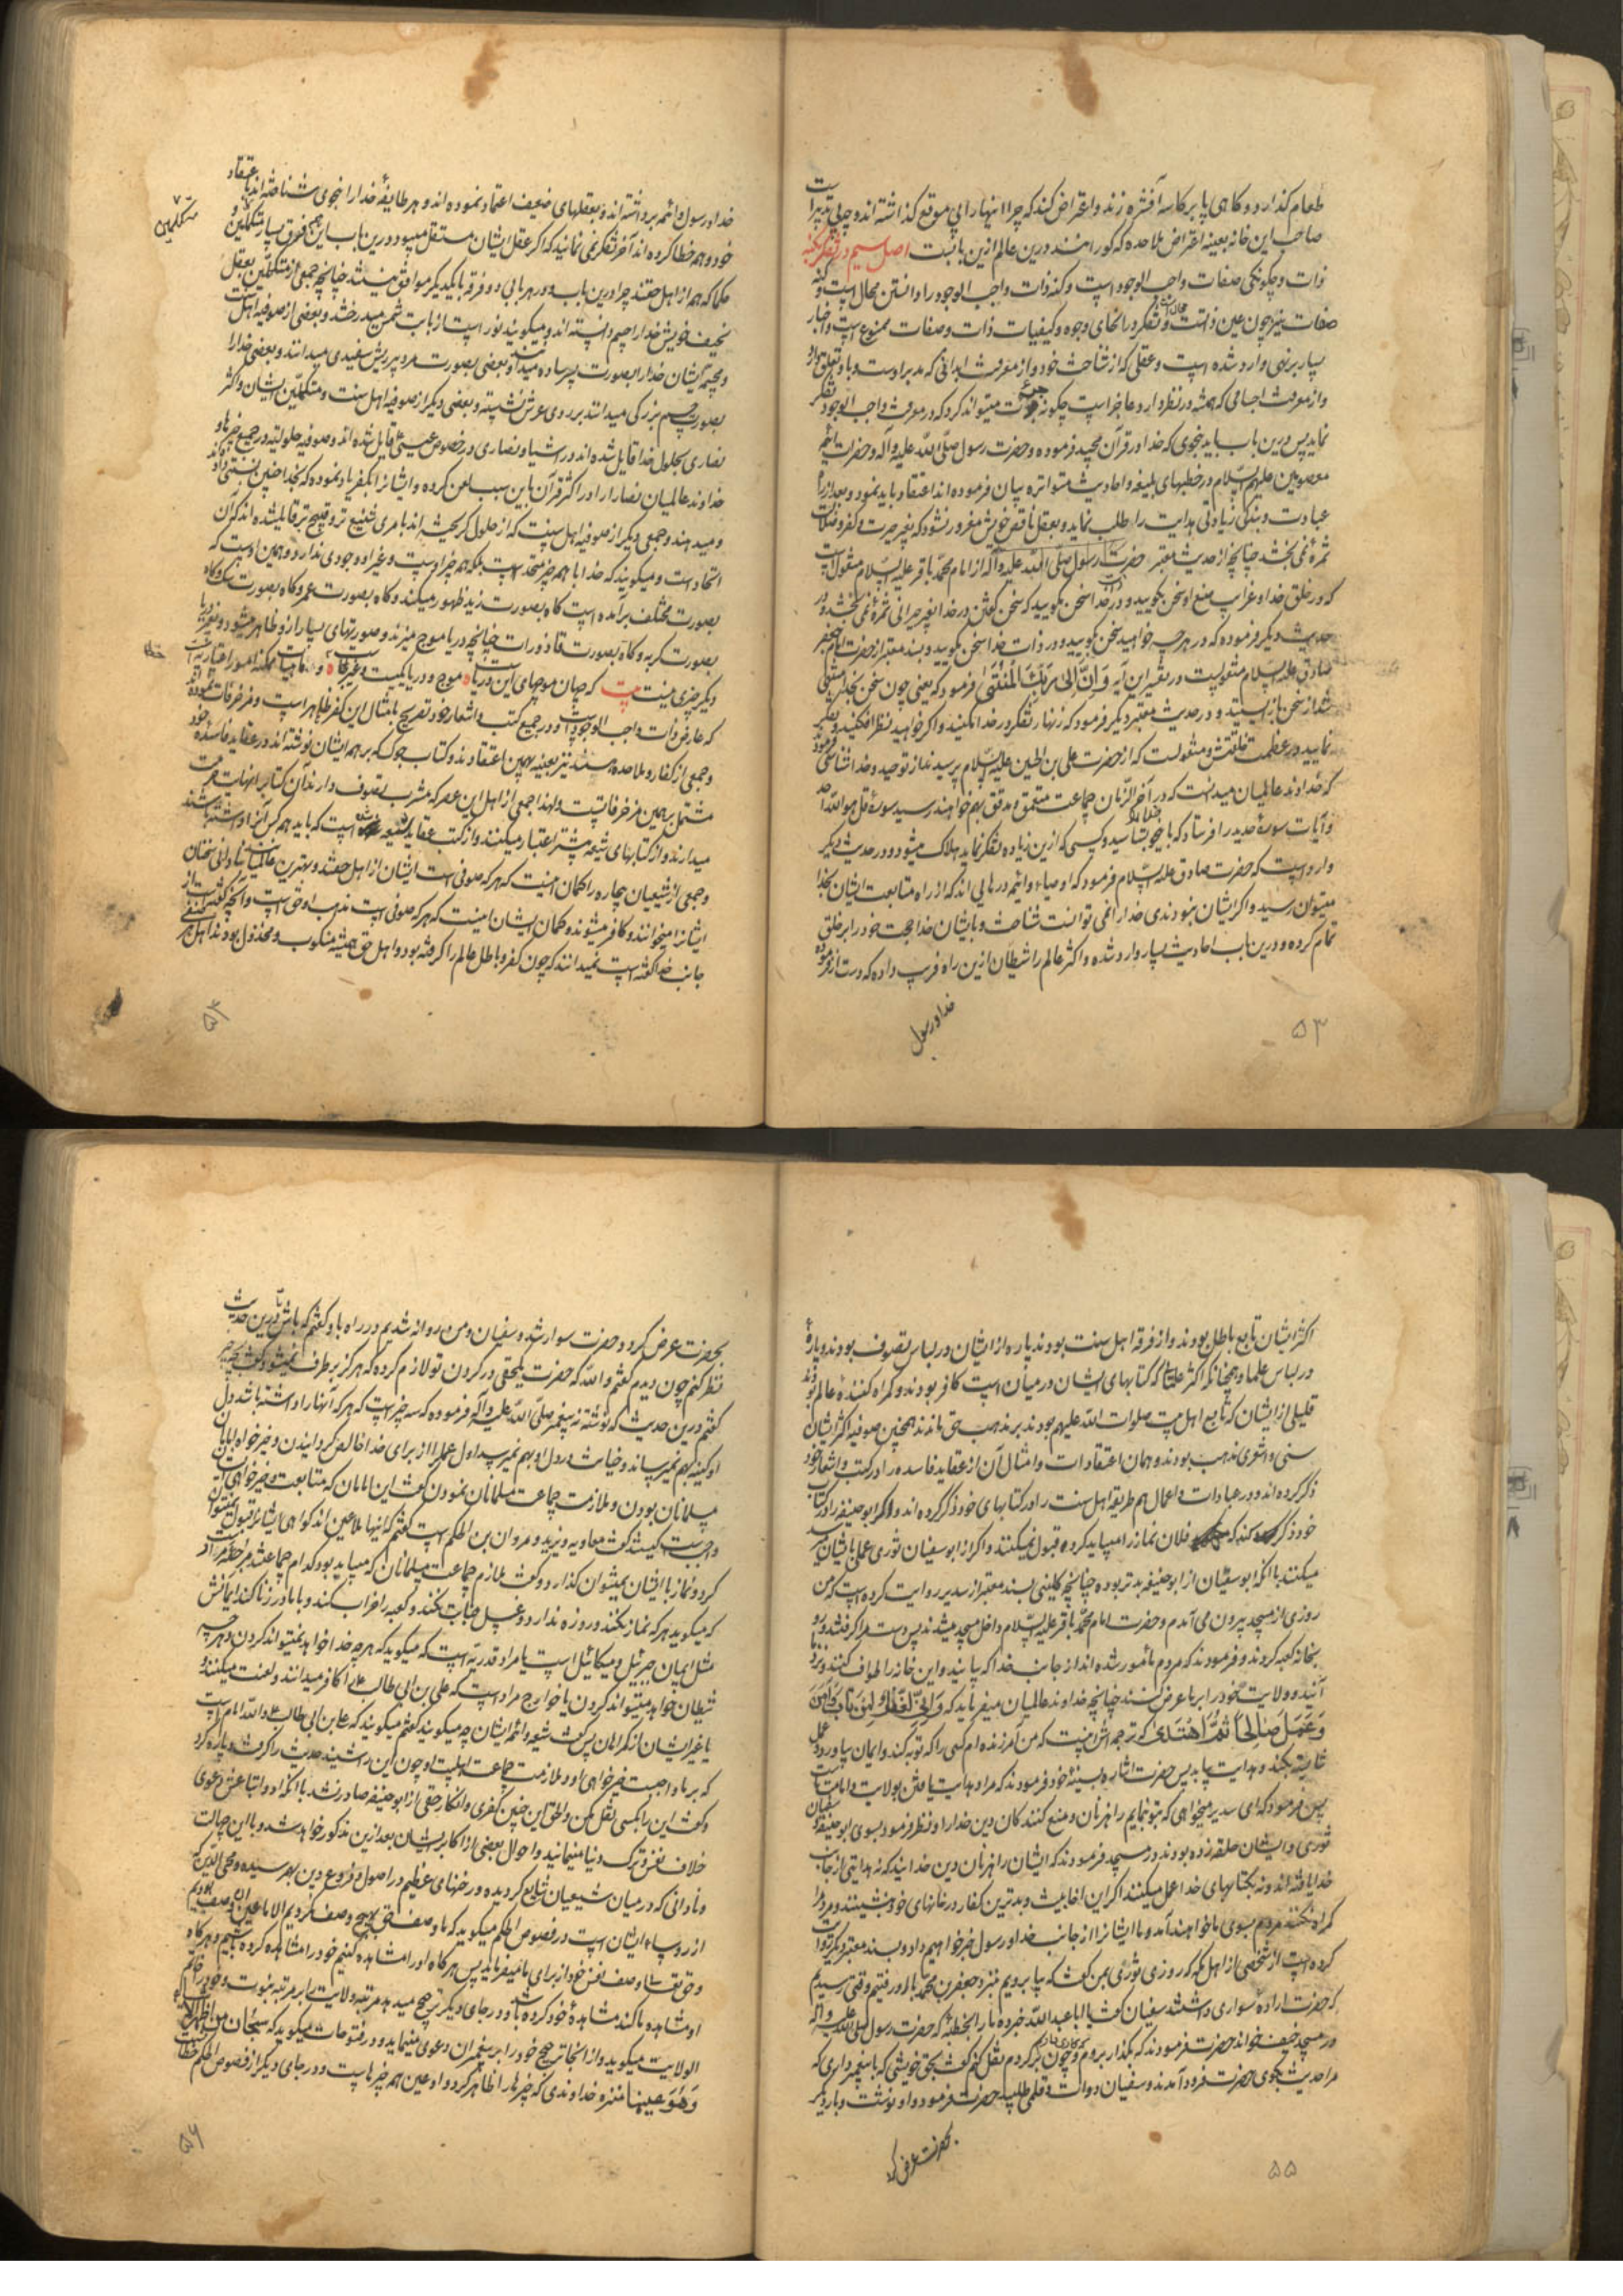 طعام گذارد و گاهی پا بر کاسه آفشره زند و اعتراض کند که چرا اینهارا بی موقع گذاشته اند و چه بی تدبیر است
صاحب این خانه بعینه اعتراض ملاحده که کورانند درین عالم ازین بابت است اصل سیم در تفکر بکنه
ذات و چگونگی صفات واجب الوجود است و کنه ذات واجب الوجود را دانستن محال است و کنه
صفات نیز چون عین ذاتست محال است و تفکر در انحای وجوه و کیفیات ذات و صفات ممنوع است و اخبار
بسیار برنهی وارد شده است و عقلی که از شناخت خود و از معرفت بدنی که مدبر اوست و باو تعلق دارد
و از معرفت اجسامی که همیشه در نظر دارد عاجز است چگونه جرئت میتواند کرد که در معرفت واجب الوجود تفکر
نماید پس درین باب باید بنحوی که خدا در قرآن مجید فرموده و حضرت رسول صلّی اللّه علیه و آله و حضرات ائمّه
معصومین علیهم السّلام در خطبهای بلیغه و احادیث متواتره بیان فرموده اند اعتقاد باید نمود و بعد از راه
عبادت و بندگی زیادتی هدایت را طلب نماید و بعقل ناقص خویش مغرور نشود که بغیر حیرت و کفر و ضلالت
ثمره نمی بخشد چنانچه از حدیث معتبر حضرت رسول صلّی اللّه علیه و آله از امام محمّد باقر علیه السّلام منقول است
که در خلق خدا و غرایب صنع او سخن بگویید و در ذات خدا سخن مگویید که سخن گفتن در خدا بغیر حیرانی ثمره نمی بخشد و در
حدیث دیگر فرموده که در هر چه خواهید سخن بگویید و در ذات خدا سخن مگویید و بسند معتبر از حضرت امام جعفر
صادق علیه السّلام منقولست در تفسیر این آیه وَ اِنَّ اِلی رَبِّکَ الْمُنْتَهی فرمود که یعنی چون سخن بخدا منتهی
شد از سخن باز ایستید و در حدیث معتبر دیگر فرمود که زنهار تفکر در خدا مکنید و اگر خواهید نظر افکنید و تفکر
نمایید در عظمت خلقتش و منقولست که از حضرت علی بن الحسین علیه السّلام پرسیدند از توحید و خدا شناسی فرمود
که خداوند عالمیان میدانست که در آخر الزّمان جماعت متعمّق و مدقق بهم خواهند رسید سورهٔ قل هو اللّه احد
و آیات سورهٔ حدید را فرستاد که باین نحو خدا را بشناسید و کسی که ازین زیاده تفکر نماید هلاک میشود و در حدیث دیگر
وارد است که حضرت صادق علیه السّلام فرمود که اوصیاء و ائمه درهایی اند که از راه متابعت ایشان بخدا
میتوان رسید و اگر ایشان نبودندی خدا را نمی توانست شناخت و بایشان خدا حجت خود را بر خلق
تمام کرده و درین باب احادیث بسیار وارد شده و اکثر عالم را شیطان ازین راه فریب داده که دست از فرموده
خدا و رسول
۵۳
خدا و رسول و ائمه برداشته اند و بعقلهای ضعیف اعتماد نموده اند و هر طایفهٔ خدا را بنحوی شناخته اند باعتقاد
خود و همه خطا کرده اند آخر تفکر نمی نمایند که اگر عقل ایشان مستقل میبود درین باب این همه فرق بسیار متکلمین و
متکلمین
حکما که همه از اهل حقند چرا درین باب و در هر بابی دو فرقه با یکدیگر موافق نیستند چنانچه جمعی از متکلمین بعقل
نحیف خویش خدا را جسم دانسته اند و میگویند نور است از بابت شمس میدرخشد و بعضی از صوفیه اهل سنت
و مجسّمه ایشان خدا را بصورت پسر ساده میدانند و بعضی بصورت مرد پیر ریش سفیدی میدانند و بعضی خدا را
بصورت جسم بزرگی میدانند بر روی عرش نشسته و بعضی دیگر از صوفیه اهل سنت و متکلمین ایشان و اکثر
نصاری بحلول خدا قایل شده اند در اشیاء و نصاری در خصوص عیسی قایل شده اند و صوفیه حلولیه در جمیع چیزها و
خداوند عالمیان نصارا را در اکثر قرآن باین سبب لعن کرده و ایشانرا بکفر یاد نموده که بخدا چنین نسبتی داده اند
و میدهند و جمعی دیگر از صوفیه اهل سنت که از حلول گریخته اند بامری شنیع تر و قبیح تر قایلشده اند که آن
اتحاد است و میگویند که خدا با همه چیز متحد است بلکه همه چیز اوست و غیر او وجودی ندارد و همین اوست که
بصورت مختلف برآمده است گاه بصورت زید ظهور میکند و گاه بصورت عمرو گاه بصورت سگ و گاه
بصورت گربه و گاه بصورت قاذورات چنانچه دریا موج میزند و صورتهای بسیار از و ظاهر میشود و بغیر دریا
دیگر چیزی نیست بیت که جهان موجهای این دریاست ه موج و دریا یکیست غیر کجاست ه و ماهیات ممکنه امور اعتباریه است
که عارض ذات واجب الوجود است و در جمیع کتب و اشعار خود تصریح بامثال این کفر ظاهر است و مزخرفات نموده اند
و جمعی از کفار و ملاحده هستند نیز بعینه بهمین اعتقادند و کتاب جوک که بر همه ایشان نوشته اند در عقاید فاسده خود
مشتمل بر همین مزخرفاتست و لهذا جمعی از اهل این عصر که مشرب تصوف دارند آن کتاب را نهایت حرمت
میدارند و از کتابهای شیعه بیشتر اعتبار میکنند و از کتب عقاید است که باید همه کس آنرا داشته باشند
و جمعی از شیعیان بیچاره را گمان اینست که هر که صوفی است ایشان از اهل حقند و بهترین عالمیانند بنادانی سخنان
ایشانرا میخوانند و کافر میشوند و گمان ایشان اینست که هر که صوفی است مذهب او حق است و آنچه گفته است از
جانب خدا گفته است نمیدانند که چون کفر و باطل عالم را گرفته بود و اهل حق همیشه منکوب و مخذول بودند اهل هر
۵۴
اکثر ایشان تابع باطل بودند و از فرقه اهل سنت بودند پاره از ایشان در لباس تصوف بودند و پارهٔ
در لباس علما و همچنانکه اکثر علمائی که کتابهای ایشان در میان است کافر بودند و گمراه کنندهٔ عالم بودند
قلیلی از ایشان که تابع اهل بیت صلوات اللّه علیهم بودند بر مذهب حق ماندند همچنین صوفیه اکثر ایشان
سنی و اشعری مذهب بودند و همان اعتقادات و امثال آن از عقاید فاسده را در کتب و اشعار خود
ذکر کرده اند و در عبادات و اعمال هم طریقه اهل سنت را در کتابهای خود ذکر کرده اند و اگر ابو حنیفه را در کتاب
خود ذکر کند که فلان نماز را میباید کرد قبول نمیکنند و اگر از ابو سفیان ثوری عملی بایشان رسد
میکنند با آنکه ابو سفیان از ابو حنیفه بدتر بوده چنانچه کلینی بسند معتبر از سدیر روایت کرده است که من
روزی از مسجد بیرون می آمدم و حضرت امام محمّد باقر علیه السّلام داخل مسجد میشدند پس دست مرا گرفتند و رو
بخانه کعبه کردند و فرمودند که مردم مأمور شده اند از جانب خدا که بیایند و این خانه را طواف کنند و بنزد ما
آیند و ولایت خود را بر ما عرض کنند چنانچه خداوند عالمیان میفرماید که وَ اِنّی لَغَفّارٌ لِمَنْ تابَ وَ آمَنَ
وَ عَمِلَ صالِحاً ثُمَّ اهْتَدی که ترجمه اش اینست که من آمرزنده ام کسی را که توبه کند و ایمان بیاورد و عمل
شایسته بکند و هدایت بیابد پس حضرت اشاره بسینهٔ خود فرمودند که مراد هدایت یافتن بولایت و امامت ماست
پس فرمود که ای سدیر میخواهی که بتو بنمایم راهزنان و منع کنندگان دین خدا را و نظر فرمود بسوی ابو حنیفه و سفیان
ثوری و ایشان حلقه زده بودند در مسجد فرمودند که ایشان راهزنان دین خدایند که نه هدایتی از جانب
خدا یافته اند و نه بکتابهای خدا عمل میکنند اگر این اخابیث و بدترین کفار در خانهای خود بنشینند و مردم را
گمراه نکنند مردم بسوی ما خواهند آمد و ما ایشانرا از جانب خدا و رسول خبر خواهیم داد و بسند معتبر دیگر روایت
کرده است از شخصی از اهل مکه که روزی ثوری بمن گفت که بیا برویم بنزد جعفر بن محمد با او رفتیم وقتی رسیدیم
که حضرت اراده سواری داشتند سفیان گفت یا ابا عبد اللّه خبر ده ما را بخطبهٔ که حضرت رسول صلی اللّه علیه و آله
در مسجد خیف خواند حضرت فرمودند که بگذار بروم و چون برگردم نقل کنم گفت بحق خویشی که با پیغمبر داری که
مرا حدیث بگوی حضرت فرود آمدند و سفیان دوات و قلمی طلبید حضرت فرمود و او نوشت و بار دیگر
بحضرت عرض کرد
۵۵
بحضرت عرض کرد و حضرت سوار شد و سفیان و من روانه شدیم در راه باو گفتم که باش تا درین حدیث
نظر کنم چون دیدم گفتم و اللّه که حضرت یکحقی در گردن تو لازم کرده که هرگز بر طرف نمیشود گفت چه چیز
گفتم درین حدیث که نوشته نه پیغمبر صلّی اللّه علیه و آله فرموده که سه چیز است که هر که آنها را داشته باشد دل
او کینه بهم نمیرساند و خیانت در دل او بهم نمیرسد اول عمل را از برای خدا خالص گردانیدن و خیر خواه امامان
مسلمانان بودن و ملازمت جماعت مسلمانان نمودن گفت این امامان که متابعت و خیر خواهی ایشان
واجبست کیستند گفت معاویه و یزید و مروان بن الحکم است گفتم که اینها ملاعین اند گواهی ایشانرا قبول نمیتوان
کرد و نماز با ایشان نمیتوان گذارد و گفت ملازم جماعت مسلمانان که میباید بود کدام جماعتند مرجئه مراد است
که میگوید هر که نماز نکند و روزه ندارد و غسل جنابت نکند و کعبه را خراب کند و با مادر زنا کند ایمانش
مثل ایمان جبرئیل و میکائیل است یا مراد قدریّه است که میگوید که هر چه خدا خواهد نمیتواند کردن و هر چه
شیطان خواهد میتواند کردن یا خوارج مراد است که علی بن ابی طالب را کافر میدانند و لعنت میکنند
یا غیر ایشان از گمراهان پس گفت شیعه و ائمه ایشان چه میگویند گفتم میگویند که علی بن ابی طالب و اللّه امام است
که بر ما واجبست خیر خواهی او و ملازمت جماعت اهلبیت او چون این را شنید حدیث را گرفت و پاره کرد
و گفت این را بکسی نقل مکن و الحق این چنین کفری و انکار حقی از ابو حنیفه صادر نشد با آنکه او و اتباعش دعوی
خلاف نفس و ترک دنیا مینمایند و احوال بعضی از اکابر ایشان بعد ازین مذکور خواهد شد و با این جهالت
و نادانی که در میان شیعیان شایع گردیده و رخنهای عظیم در اصول و فروع دین بهم رسیده و محی الدّین که
از رؤساء ایشان است در فصوص الحکم میگوید که ما وصف حق بهیچ وصف نکردیم الا ما عین آن وصف بودیم
و حق تعالی وصف نفس خود از برای ما میفرماید پس هر گاه او را مشاهده کنیم خود را مشاهده کرده باشیم و هر گاه
او مشاهده ما کند مشاهدهٔ خود کرده باشد و در جای دیگر ترجیح میدهد مرتبه ولایت را بر مرتبه نبوت و خود را خاتم
الولایت میگوید و از اینجا ترجیح خود را بر پیغمبران دعوی مینماید و در فتوحات میگوید که سبحان من اظهر الاشیاء
وَ هُوَ عَینُها منزه خداوندی که چیزها را ظاهر گردد و او عین همه چیزهاست و در جای دیگر از فصوص الحکم خطاب
۵۶